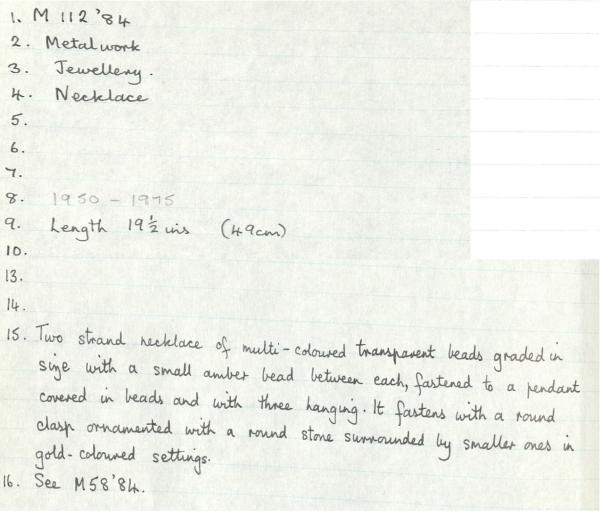 1. M 112 '84
2. Metalwork
3. Jewellery.
4. Necklace
5.
6.
7.
8. 1950 - 1975
9. Length 19½ ins (49cm)
10.
13.
14.
15. Two strand necklace of multi-coloured transparent beads graded in
size with a small amber bead between each, fastened to a pendant
covered in beads and with three hanging. It fastens with a round
clasp ornamented with a round stone surrounded by smaller ones in
gold-coloured settings.
16. See M58'84.